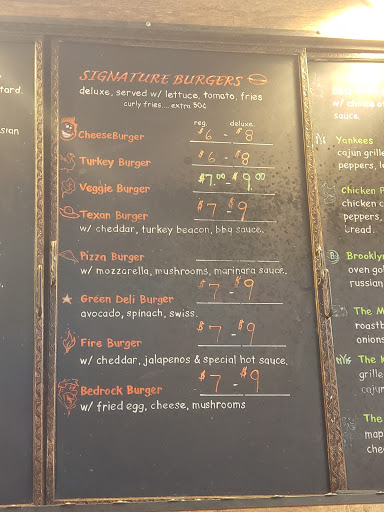 tard.
sian
SIGNATURE BURGERS
deluxe, served w/ lettuce, tomato, fries
curly fries.... extra 50¢
reg. deluxe.
CheeseBurger $6 - $8
Turkey Burger $6 - $8
Veggie Burger $7.00 - $9.00
Texan Burger $7 - $9
w/ cheddar, turkey beacon, bbq sauce.
Pizza Burger
w/ mozzarella, mushrooms, marinara sauce.
Green Deli Burger $7 - $9
avocado, spinach, swiss.
Fire Burger $7 - $9
w/ cheddar, jalapenos & special hot sauce.
Bedrock Burger $7 - $9
w/ fried egg, cheese, mushrooms
sauce.
Yankees
cajun grille
peppers, le
Chicken P
chicken c
peppers,
bread.
Brooklyn
oven go
russian
The M
roastb
onions
The K
grille
cajun
The
map
che